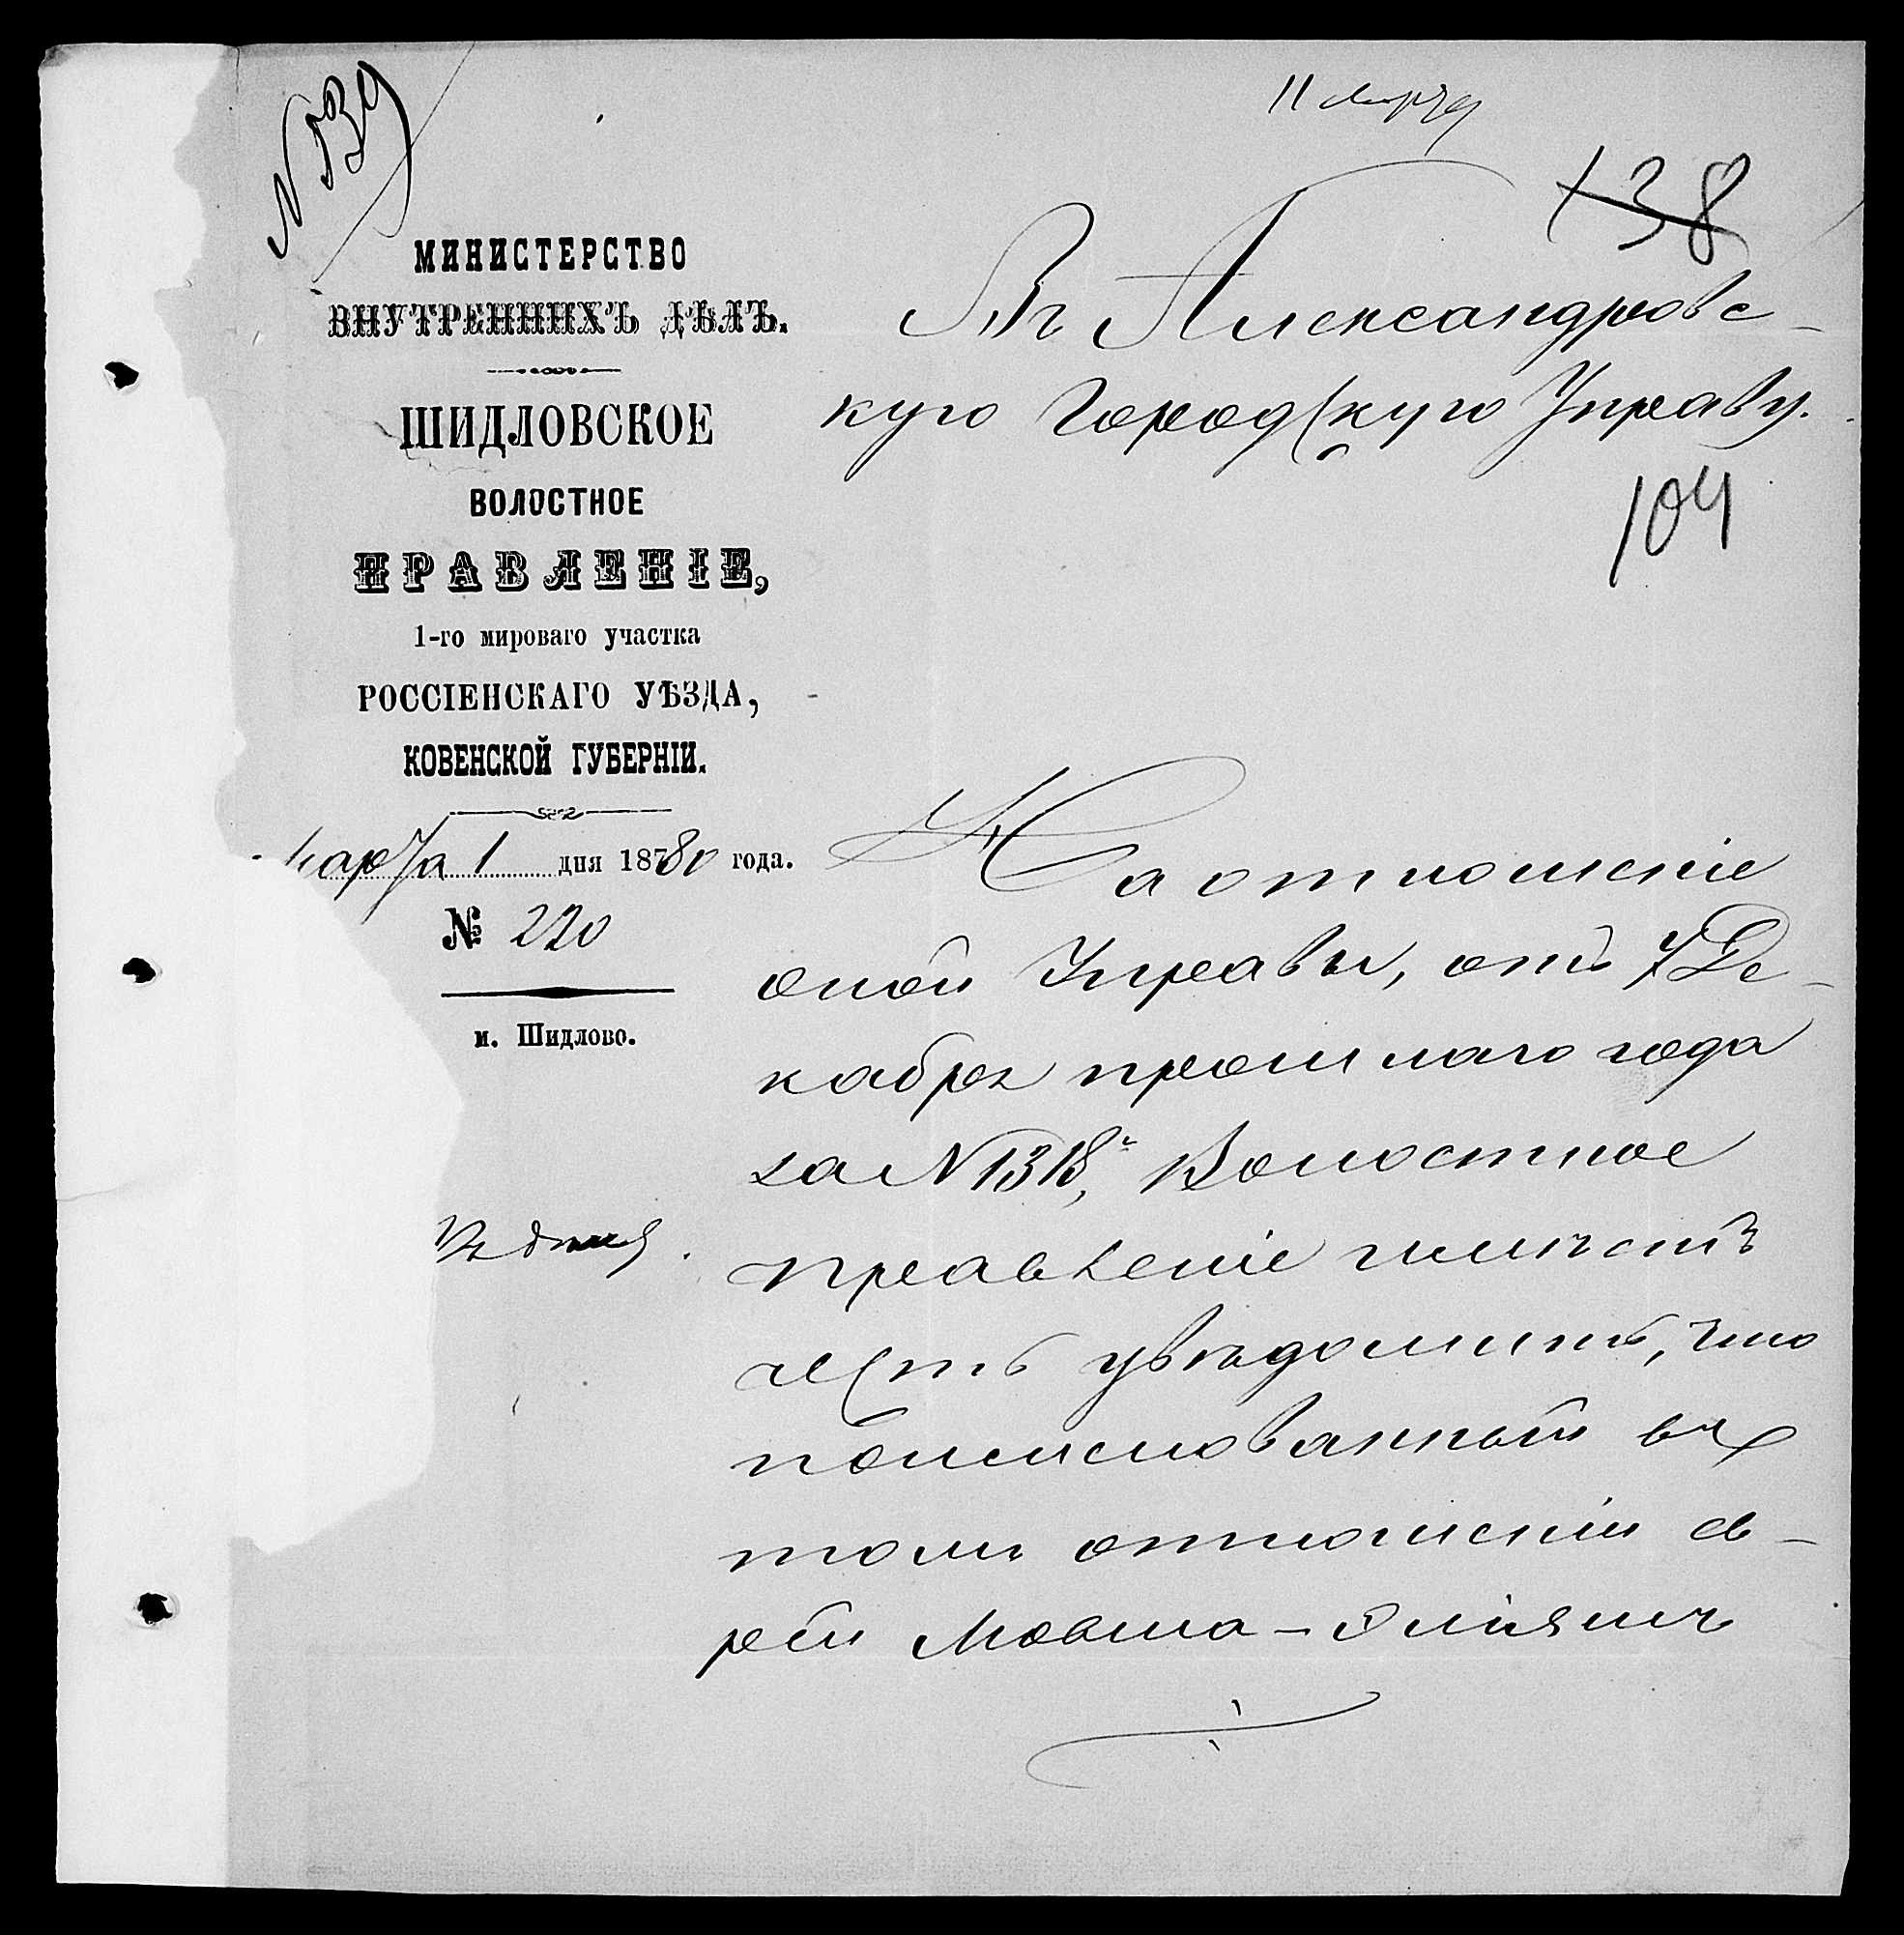 № 539
11 марта
138
МИНИСТЕРСТВО
ВНУТРЕННИХЪ ДѢЛЪ.
ШИДЛОВСКОЕ
ВОЛОСТНОЕ
ПРАВЛЕНІЕ,
1-го мироваго участка
РОССІЕНСКАГО УѢЗДА,
КОВЕНСКОЙ ГУБЕРНІИ.
Марта 1 дня 18780 года.
№ 220
м. Шидлово.
Въ Александровс-
кую Городскую Управу.
104
На отношеніе
оной Управы, отъ 7 Де-
кабря прошлаго года
за № 1318, Волостное
правленіе имѣетъ
честь увѣдомить, что
поименованный въ
томъ отношеніи ев-
рей Мовша-Эліяшъ